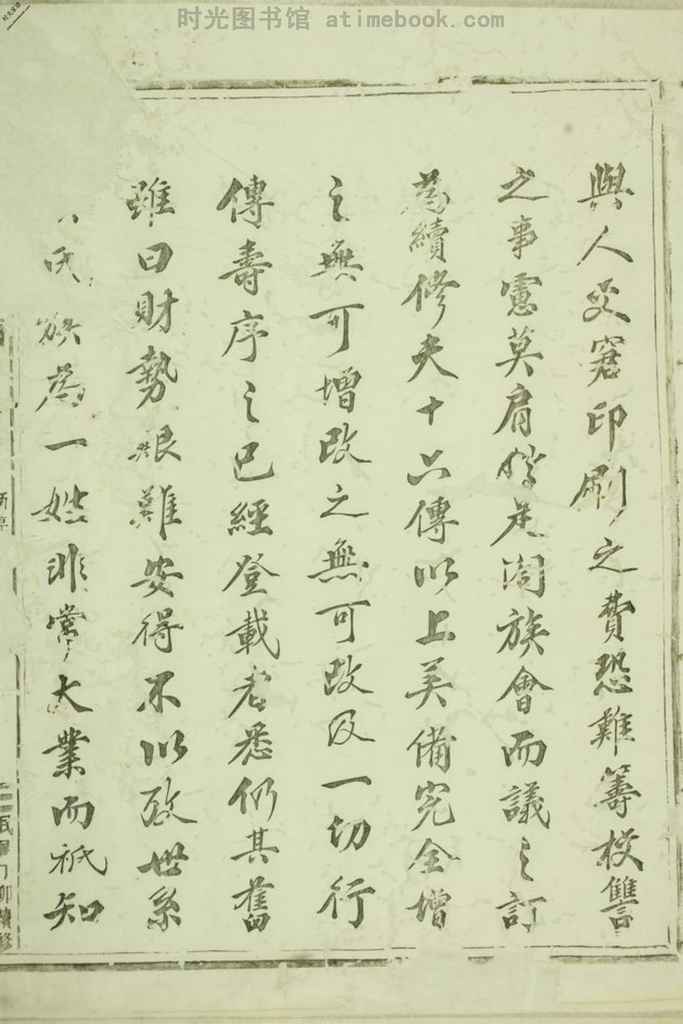 时光图书馆 atimebook.com
與人交竄印刷之費恐難籌校讐
之事憲莫肩於是闔族會而議之訂
為續修夫十六傳以上美備完全增
之無可增改之無可改及一切行
傳壽序之已經登載者悉仍其舊
雖曰財勢艱難安得不以致世系
氏族為一姓非常大業而祇知